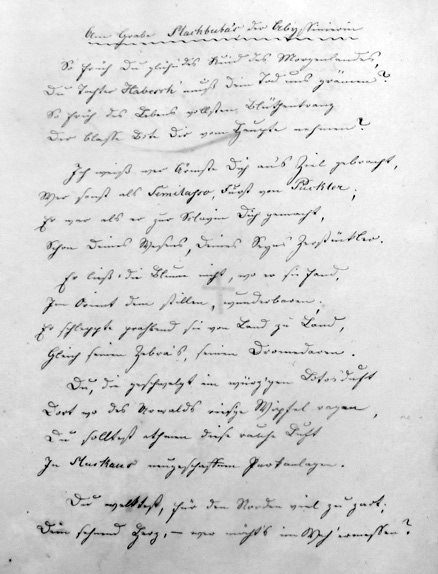 Am Grabe Machbuba's der Abyssinierin
So früh Du glühndes Kind des Morgenlandes,
Du Tochter Habesch' muß Dein Tod uns grämen?
So früh des Lebens vollsten Blüthenkranz
Der blasse Bote Dir vom Haupte nehmen?
Ich weiß wer Ärmste Dich ans Ziel gebracht,
Wer sonst als Semilasso, Fürst von Pückler;
Er war als er zur Sclavin Dich gemacht,
Schon Deines Wesens, Deines Segens Zerstückler.
Er ließ die Blume nicht, wo er sie fand,
Im Orient dem stillen, wunderbaren;
Er schleppte prahlend sie von Land zu Land,
Gleich seinen Zebra's, seinen Dromedaren.
Du, die geschwelgt im würz'gen Lotosduft
Dort wo des Urwalds riesge Wipfel ragen,
Du solltest athmen diese rauhe Luft
In Muskaus neugeschaffnen Parkanlagen.
Du welktest, für den Norden viel zu zart.
Dein sehnend Herz, – wer möcht's im Weh' ermessen?